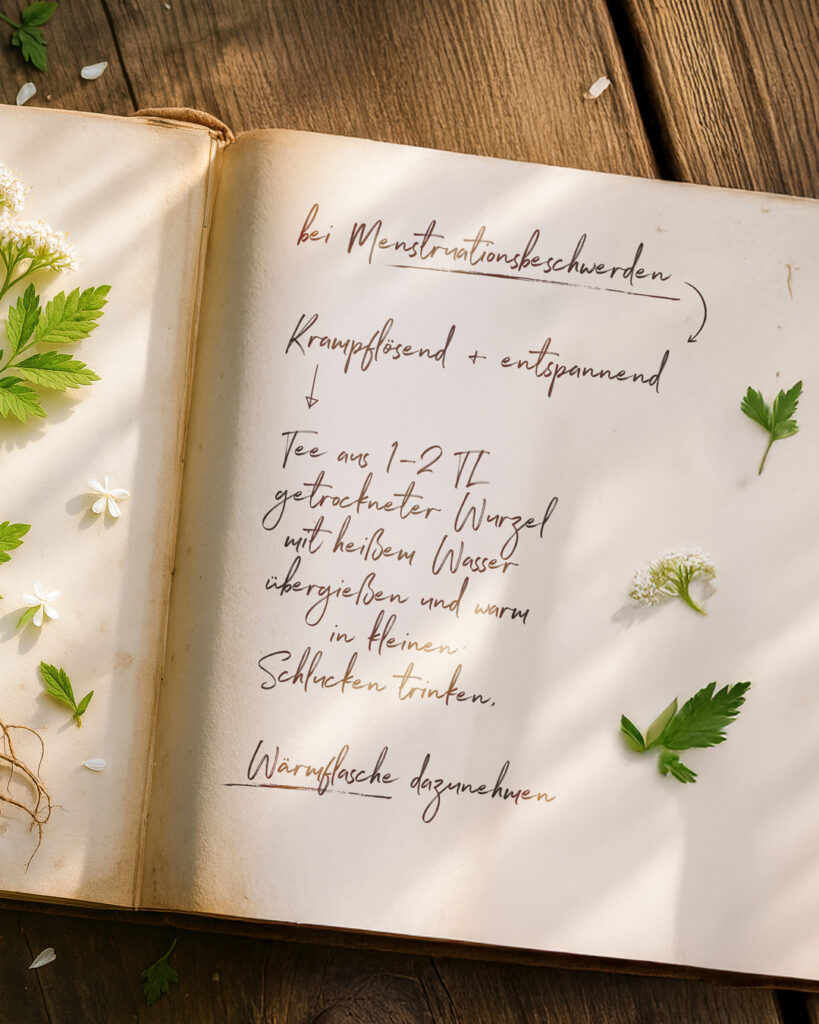 bei Menstruationsbeschwerden
Krampflösend + entspannend
Tee aus 1-2 TL
getrockneter Wurzel
mit heißem Wasser
übergießen und warm
in kleinen
Schlucken trinken.
Wärmflasche dazunehmen